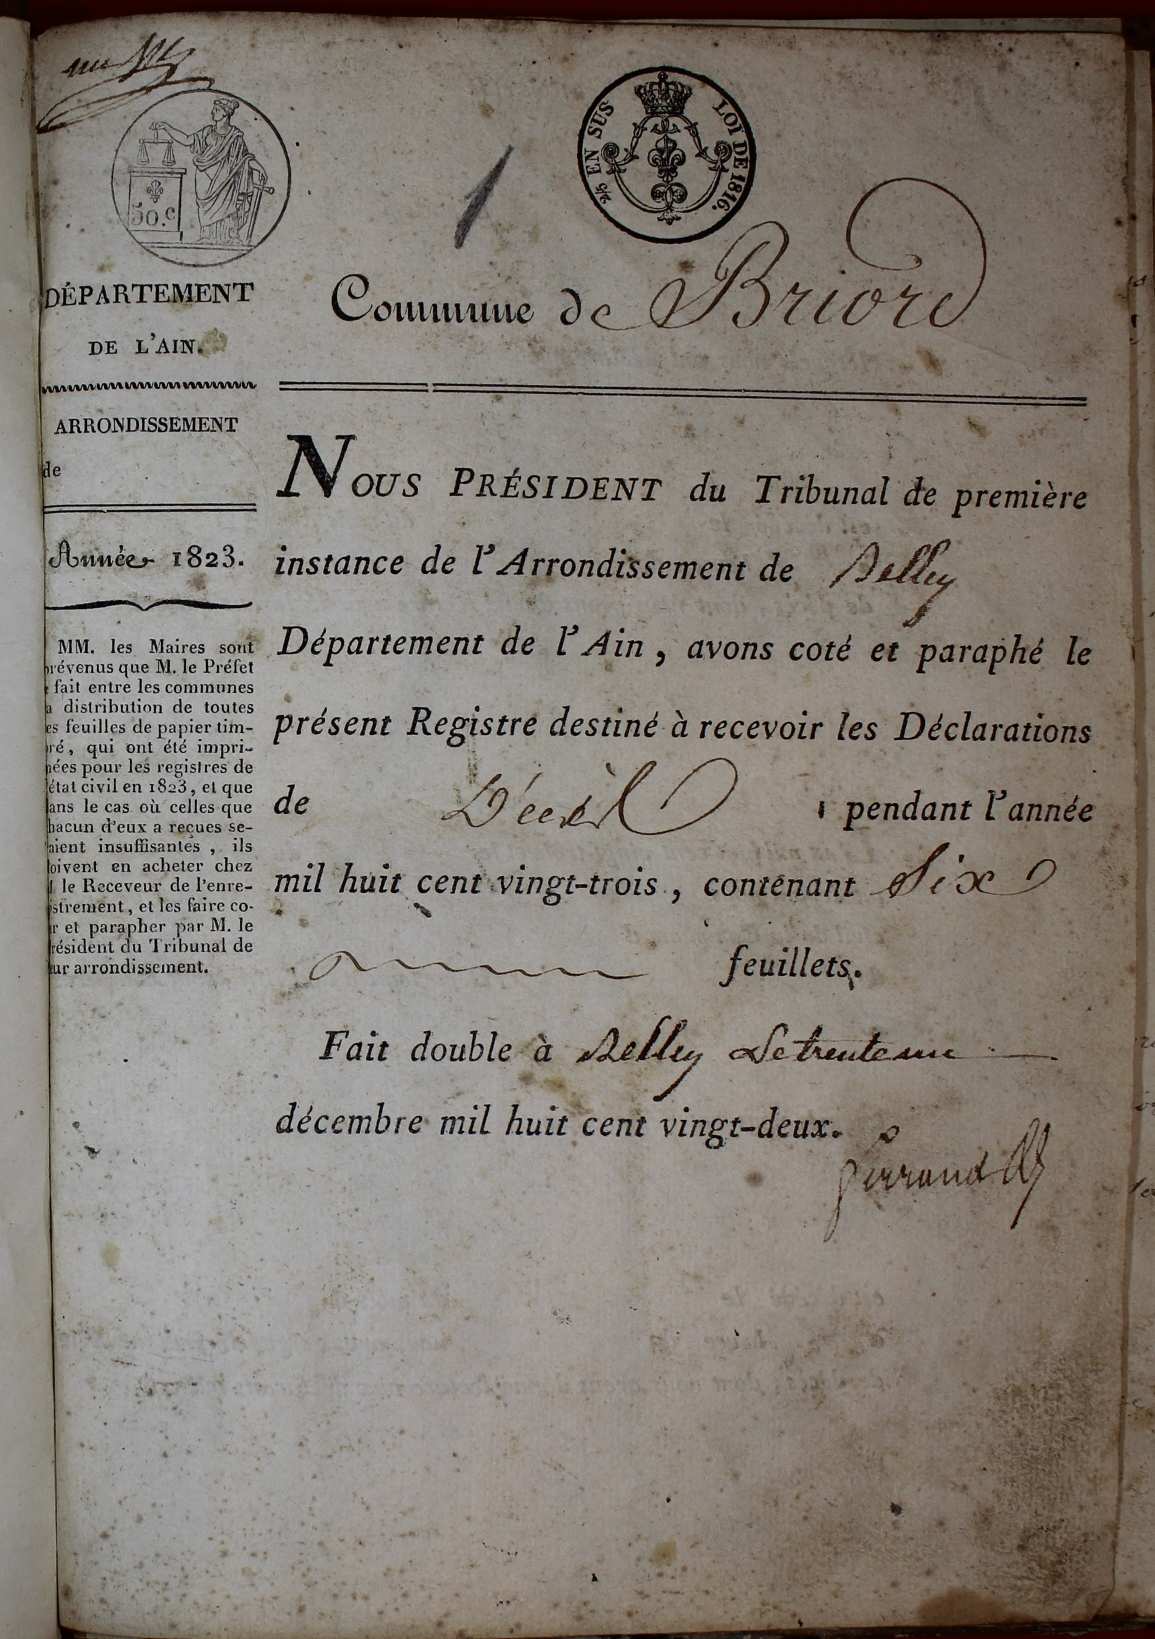 un
50.c
EN SUS LOI DE 1816.
1
DÉPARTEMENT
DE L'AIN.
ARRONDISSEMENT
de
Année 1823.
MM. les Maires sont
révenus que M. le Préfet
fait entre les communes
a distribution de toutes
es feuilles de papier tim-
ré, qui ont été impri-
ées pour les registres de
état civil en 1823, et que
ans le cas où celles que
hacun d'eux a reçues se-
aient insuffisantes, ils
oivent en acheter chez
le Receveur de l'enre-
strement, et les faire co-
r et parapher par M. le
résident du Tribunal de
ur arrondissement.
Commune de Briord
NOUS PRÉSIDENT du Tribunal de première
instance de l'Arrondissement de Belley
Département de l'Ain, avons coté et paraphé le
présent Registre destiné à recevoir les Déclarations
de Décès pendant l'année
mil huit cent vingt-trois, contenant Six
feuillets.
Fait double à Belley Le trente un
décembre mil huit cent vingt-deux.